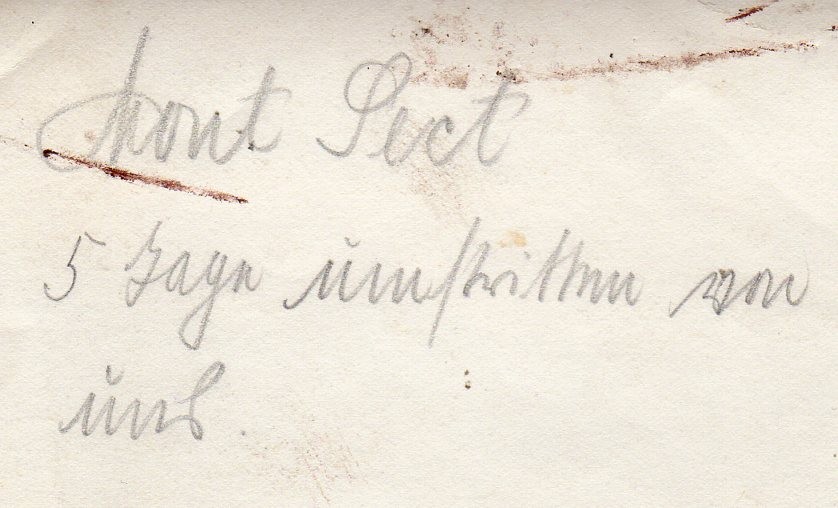 Mont Sect
5 Tage umstritten von
uns.